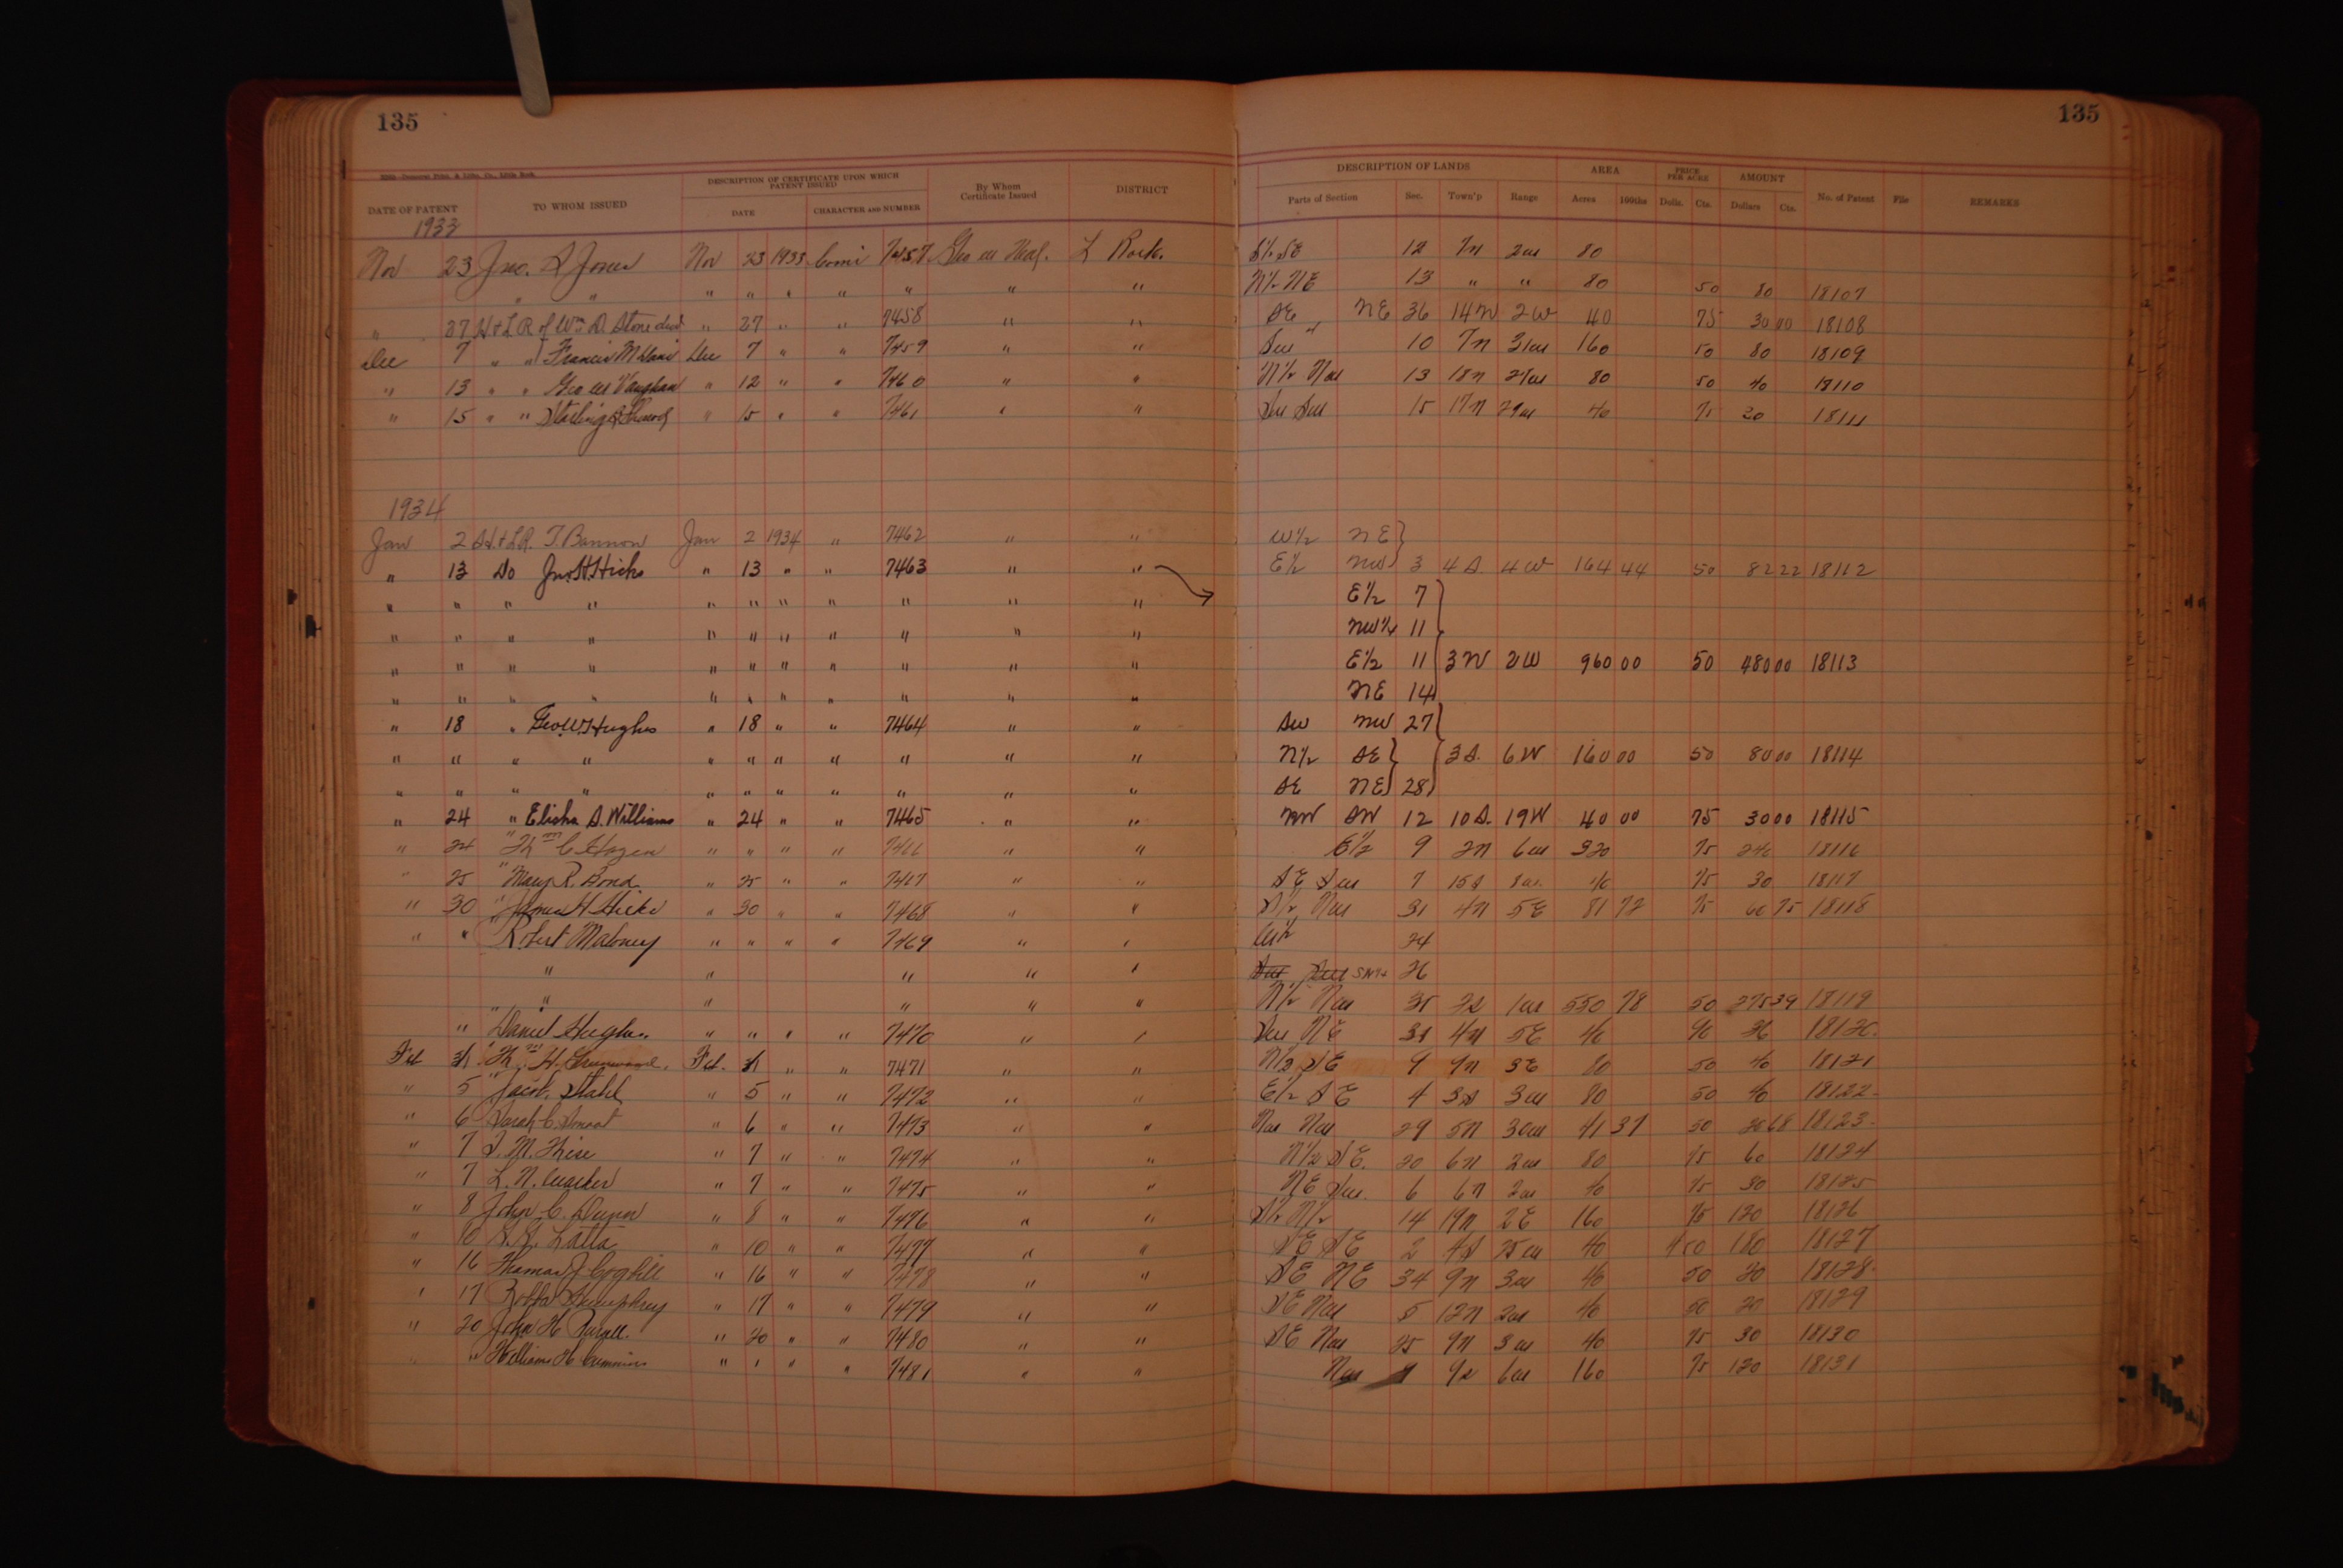 135
135
DATE OF PATENT TO WHOM ISSUED DESCRIPTION OF CERTIFICATE UPON WHICH PATENT ISSUED DATE CHARACTER AND NUMBER By Whom Certificate Issued DISTRICT DESCRIPTION OF LANDS Parts of Section Sec. Town'p Range AREA Acres 100ths PRICE PER ACRE Dolls. Cts. AMOUNT Dollars Cts. No. of Patent File REMARKS
1933
Nov 23 Jno. Jones Nov 23 1933 7457 Geo L Rock. S½ SE 12 7N 2W 80
" " " " " " " " " N½ NE 13 " " 80 50 80 18107
" 27 H+LR of Wm D. Stone decd " 27 " " 7458 " " SE NE 36 14N 2W 40 75 30 00 18108
Dec 7 " " Francis M Dec 7 " " 7459 " " SW 10 7N 31W 160 50 80 18109
" 13 " " Geo W Vaughan " 12 " " 7460 " " N½ NW 13 18N 80 50 40 18110
" 15 " " " 15 " " 7461 " " SW SW 15 17N 29W 40 75 30 18111
1934
Jan 2 H.+L.R. T. Bannon Jan 2 1934 " 7462 " " W½ NE
" 13 Do Jno. H. Hicks " 13 " " 7463 " " E½ NW 3 4 S. 4 W 164 44 50 82 22 18112
" " " " " " " " " " " E½ 7
" " " " " " " " " " " NW¼ 11
" " " " " " " " " " " E½ 11 3 N 2 W 960 00 50 480 00 18113
" " " " " " " " " " " NE 14
" 18 " Geo. W. Hughes " 18 " " 7464 " " SW NW 27
" " " " " " " " " " " N½ SE 3 S. 6 W 160 00 50 80 00 18114
" " " " " " " " " " " SE NE 28
" 24 " Elisha S. Williams " 24 " " 7465 " " NW SW 12 10 S. 19 W 40 00 75 30 00 18115
" 24 " C Hogen " " " " 7466 " " E½ 9 2N 6W 320 75 240 18116
" 25 " Mary R. Bond " 25 " " 7467 " " SE SW 7 15S 8W 40 75 30 18117
" 30 " James H Hicks " 30 " " 7468 " " NW 31 4N 5E 81 75 18118
" " Robert Maloney " " " " 7469 " " W½ 24
" " " " " SW¼ 26
" " " " " N½ NW 35 1W 550 78 50 275 39 18119
" " Daniel Hughes " " " " 7470 " " SW NE 4N 5E 40 90 36 18120
Feb H. Greenwood Feb. " " 7471 " " SE 9 9N 3E 80 50 40 18121
" 5 " Jacob Stahl " 5 " " 7472 " " E½ SE 4 3S 3W 80 50 40 18122
" 6 Sarah C. " 6 " " 7473 " " NW NW 29 5N 30W 41 37 50 20 68 18123
" 7 " 7 " " 7474 " " N½ SE. 20 6N 2W 80 75 60 18124
" 7 L. N. " 7 " " 7475 " " NE SW 6 6N 2W 40 75 30 18125
" 8 John C. " 8 " " 7476 " " S½ N½ 14 19N 2E 160 75 120 18126
" 10 Latta " 10 " " 7477 " " SE SE 2 4S 25W 40 4 50 180 18127
" 16 Thomas J. Coghill " 16 " " 7478 " " SE NE 34 9N 3W 40 50 20 18128
" 17 Humphrey " 17 " " 7479 " " SE NW 5 12N 2W 40 50 20 18129
" 20 John H " 20 " " 7480 " " SE NW 25 9N 3W 40 75 30 18130
" " William H Cummins " " " " 7481 " " NW 6W 160 75 120 18131